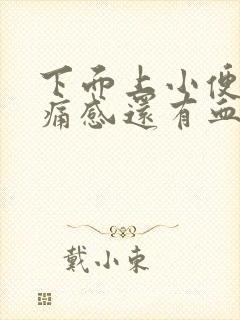 下面上小便
痛感還有血
戴小東